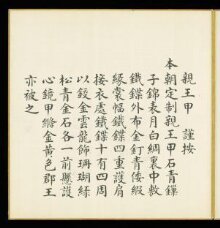 親王甲 謹按
本朝定制親王甲石青鏁
子錦表月白綢裏中敷
鐵鍱外布金釘青倭緞
緣裳幅鐵鍱四重護肩
接衣處鐵鍱十有四周
以鋄金雲龍飾珊瑚綠
松青金石各一前懸護
心鏡甲絛金黃色郡王
亦被之